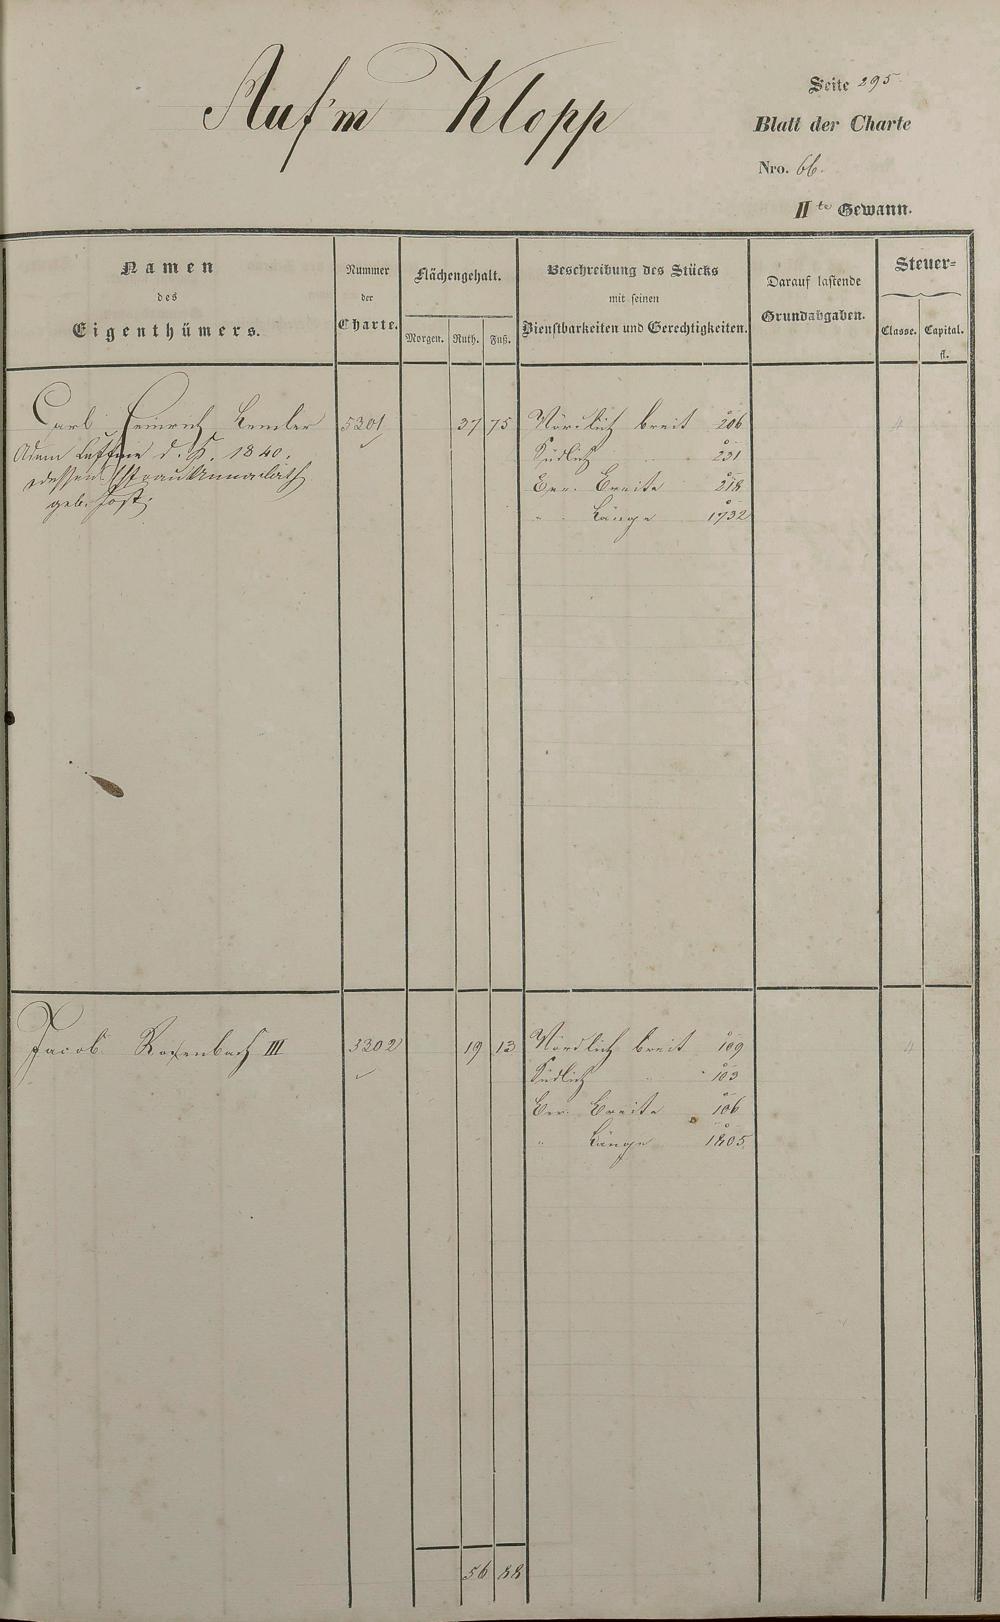 Auf'm Klopp
Seite 295.
Blatt der Charte
Nro. 66.
II te Gewann.
Namen
des
Eigenthümers.
Nummer
der
Charte.
Flächengehalt.
Morgen. Ruth. Fuß.
Beschreibung des Stücks
mit seinen
Dienstbarkeiten und Gerechtigkeiten.
Darauf lastende
Grundabgaben.
Steuer-
Classe. Capital.
fl.
Carl Heinrich 5301 37 75 Nördlich breit 206 4
Adam d. 1840. Südlich 231
dessen geb. Jost Ber. Breite 218
" Länge 1732
Jacob Rosenbach III 5302 19 13 Nördlich breit 109 4
Südlich " 103
Ber. Breite 106
" Länge 1805
56 88